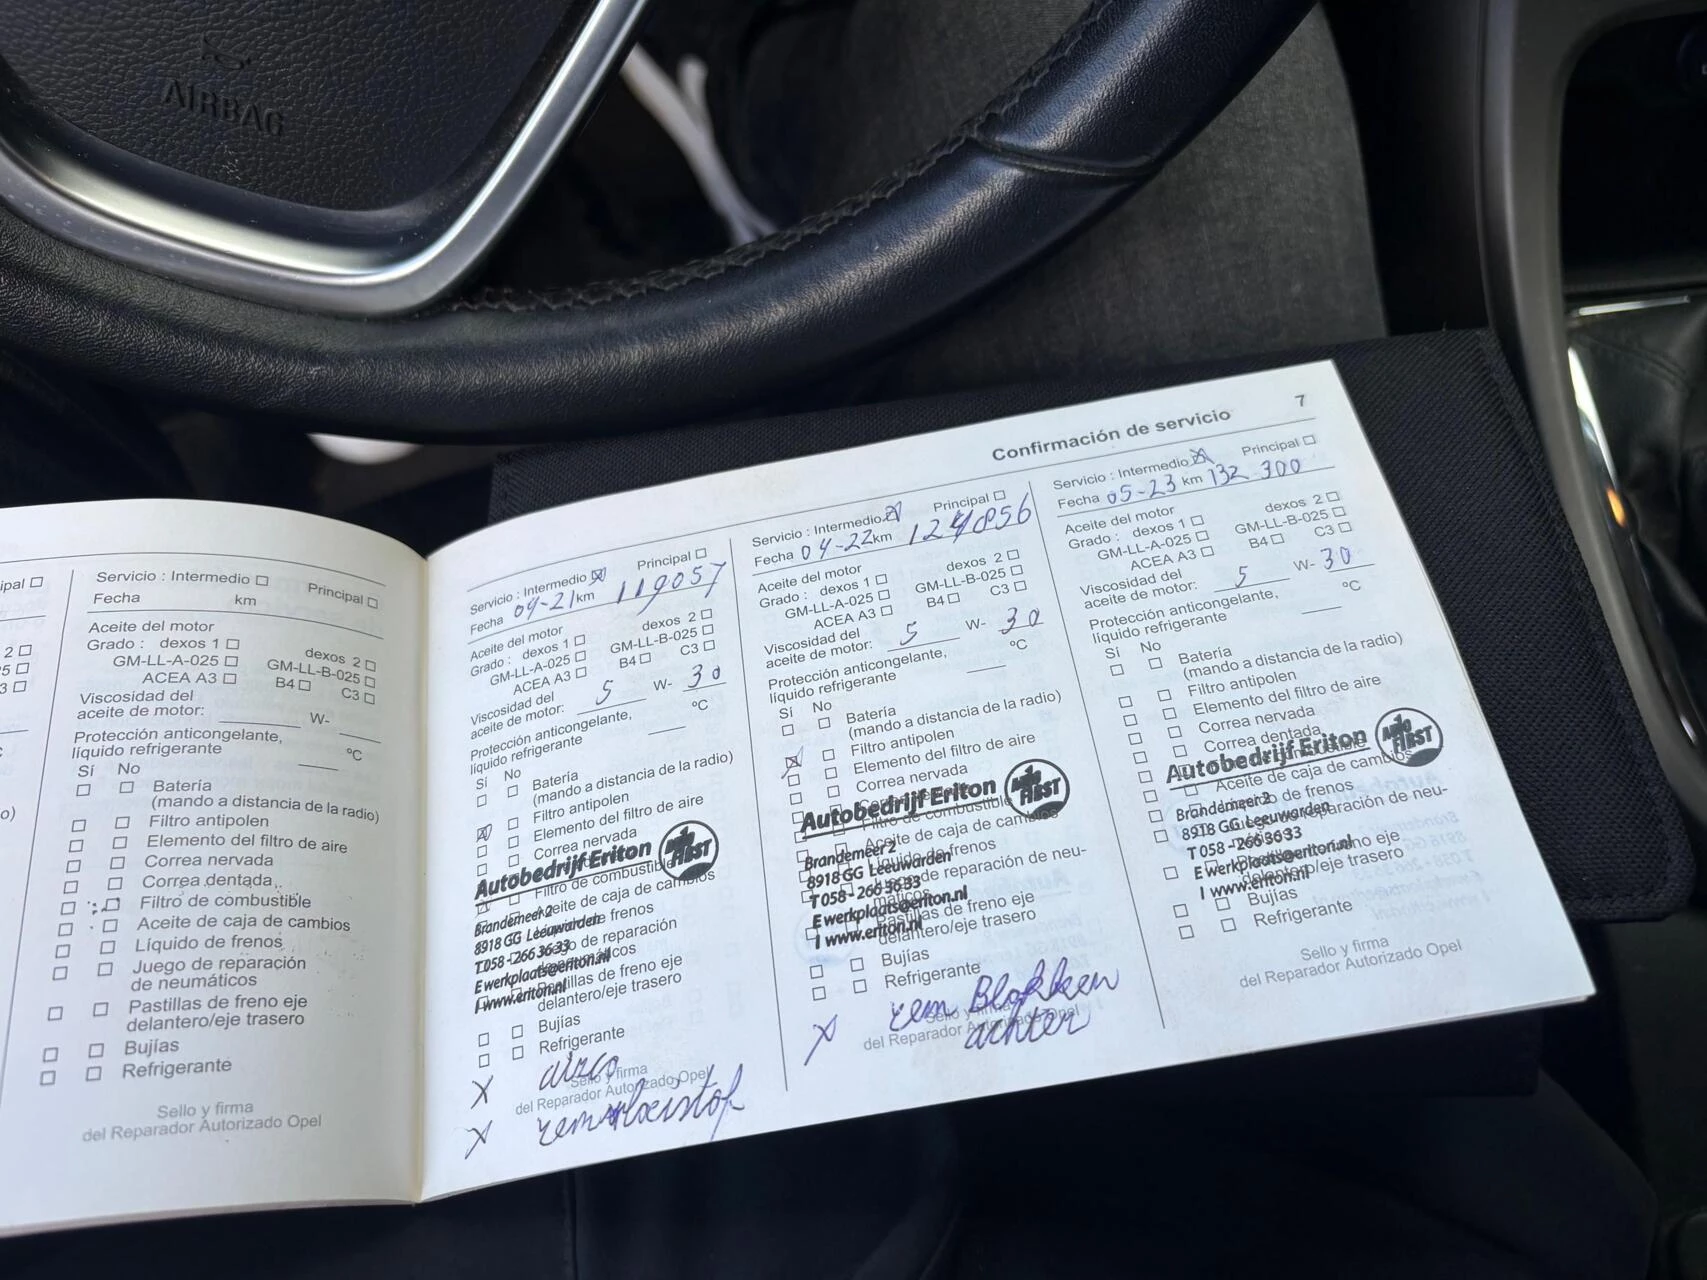 AIRBAG
cipal
2
5
3
o)
C
Servicio : Intermedio Principal
Fecha km
Aceite del motor
Grado : dexos 1 dexos 2
GM-LL-A-025 GM-LL-B-025
ACEA A3 B4 C3
Viscosidad del
aceite de motor: W-
Protección anticongelante,
líquido refrigerante °C
Sí No
Batería
(mando a distancia de la radio)
Filtro antipolen
Elemento del filtro de aire
Correa nervada
Correa dentada
Filtro de combustible
Aceite de caja de cambios
Líquido de frenos
Juego de reparación
de neumáticos
Pastillas de freno eje
delantero/eje trasero
Bujías
Refrigerante
Sello y firma
del Reparador Autorizado Opel
Confirmación de servicio 7
Servicio : Intermedio Principal
Fecha 04-21 km 119057
Aceite del motor
Grado : dexos 1 dexos 2
GM-LL-A-025 GM-LL-B-025
ACEA A3 B4 C3
Viscosidad del
aceite de motor: 5 W- 30
Protección anticongelante,
líquido refrigerante °C
Sí No
Batería
(mando a distancia de la radio)
Filtro antipolen
Elemento del filtro de aire
Correa nervada
Autobedrijf Eriton
AutoFIRST
Filtro de combustible
Aceite de caja de cambios
Brandemeer 2
8918 GG Leeuwarden
T 058 - 266 36 33
E werkplaats@eriton.nl
I www.eriton.nl
de frenos
de reparación
de neumáticos
Pastillas de freno eje
delantero/eje trasero
Bujías
Refrigerante
X airco
Sello y firma
del Reparador Autorizado Opel
X remvloeistof
Servicio : Intermedio Principal
Fecha 04-22 km 124056
Aceite del motor
Grado : dexos 1 dexos 2
GM-LL-A-025 GM-LL-B-025
ACEA A3 B4 C3
Viscosidad del
aceite de motor: 5 W- 30
Protección anticongelante,
líquido refrigerante °C
Sí No
Batería
(mando a distancia de la radio)
Filtro antipolen
Elemento del filtro de aire
Correa nervada
Autobedrijf Eriton
AutoFIRST
Filtro de combustible
Aceite de caja de cambios
Brandemeer 2
8918 GG Leeuwarden
T 058 - 266 36 33
E werkplaats@eriton.nl
I www.eriton.nl
Líquido de frenos
Juego de reparación de neu-
máticos
Pastillas de freno eje
delantero/eje trasero
Bujías
Refrigerante
X rem Blokken
achter
Sello y firma
del Reparador Autorizado Opel
Servicio : Intermedio Principal
Fecha 05-23 km 132 300
Aceite del motor
Grado : dexos 1 dexos 2
GM-LL-A-025 GM-LL-B-025
ACEA A3 B4 C3
Viscosidad del
aceite de motor: 5 W- 30
Protección anticongelante,
líquido refrigerante °C
Sí No
Batería
(mando a distancia de la radio)
Filtro antipolen
Elemento del filtro de aire
Correa nervada
Correa dentada
Autobedrijf Eriton
AutoFIRST
Aceite de caja de cambios
Brandemeer 2
8918 GG Leeuwarden
T 058 - 266 36 33
E werkplaats@eriton.nl
I www.eriton.nl
de frenos
Juego de reparación de neu-
de freno eje
delantero/eje trasero
Bujías
Refrigerante
Sello y firma
del Reparador Autorizado Opel